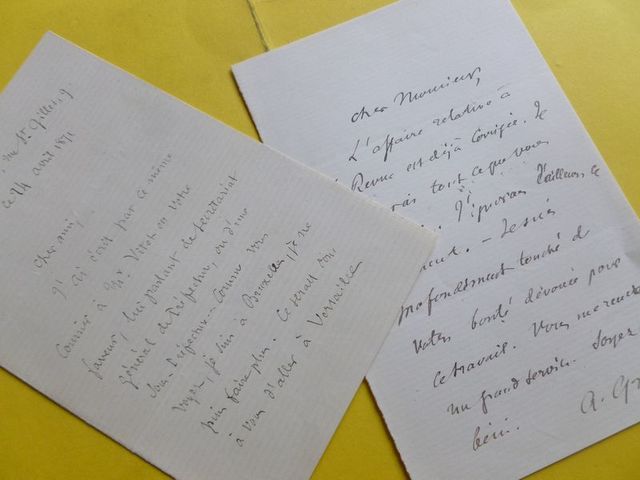 rue St. Gilles, 9
ce 14 avril 1871
Cher ami,
J'ai écrit par ce même
Courrier à Mr. Vitet en votre
faveur, lui parlant de secrétariat
général de Préfecture, ou d'une
Sous Préfecture. — Comme vous
voyez, je suis à Bruxelles, je ne
puis faire plus. Ce serait donc
à vous d'aller à Versailles
Cher Monsieur,
L'affaire relative à
Revue est déjà corrigée. Je
tout ce que vous
J'ignorais d'ailleurs ce
— Je suis
profondément touché de
votre bonté dévouée pour
ce travail. Vous me rendez
un grand service. Soyez
béni.
A.